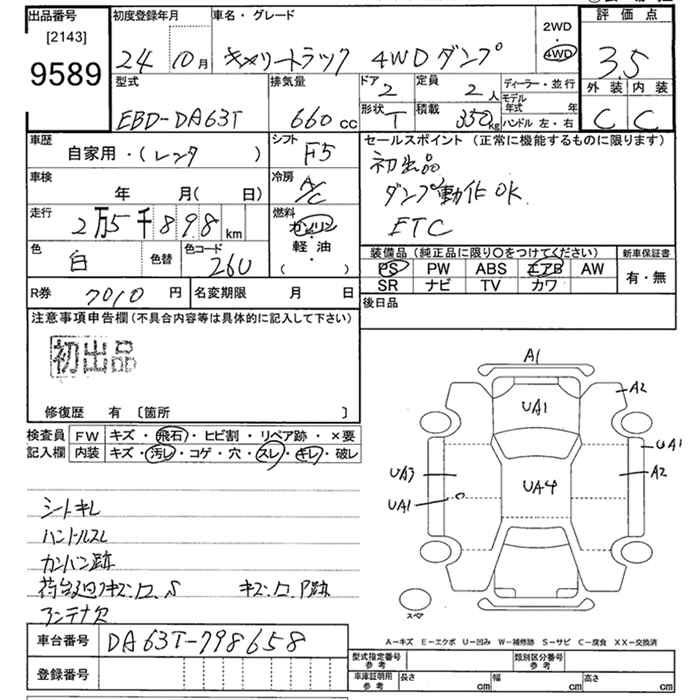 出品番号 初度登録年月 車名・グレード 2WD 評価点
[2143] 24 10月 キャリートラック 4WDダンプ 4WD 3.5
9589 型式 排気量 ドア 定員 ディーラー・並行 外装 内装
EBD-DA63T 660cc 2 2人 モデル年式 年 C C
形状 T 積載 350kg ハンドル 左・右
車歴 シフト セールスポイント(正常に機能するものに限ります)
自家用・(レンタ ) F5 初出品
車検 冷房 ダンプ動作OK
年 月( 日) A/C ETC
走行 燃料
2万5千898km ガソリン
色 色替 色コード 軽油 装備品(純正品に限り○をつけてください) 新車保証書
白 26U ( ・ ) PS PW ABS エアB AW 有・無
R券 7010円 名変期限 月 日 SR ナビ TV カワ
注意事項申告欄(不具合内容等は具体的に記入して下さい) 後日品
初出品
修復歴 有 〔箇所 〕
検査員 FW キズ・飛石・ヒビ割・リペア跡・×要
記入欄 内装 キズ・汚レ・コゲ・穴・スレ・キレ・破レ
シートキレ
ハンドルスレ
カンバン跡
荷台廻りキズ・ロ、S キズ・ロ、P跡
アンテナ欠
A1
A2
UA1
UA1
UA3 UA4 A2
UA1
スペア
A-キズ E-エクボ U-凹み W-補修跡 S-サビ C-腐食 XX-交換済
車台番号 DA63T-798658
登録番号
型式指定番号 参考 類別区分番号 参考
車庫証明用 参考 長さ cm 幅 cm 高さ cm